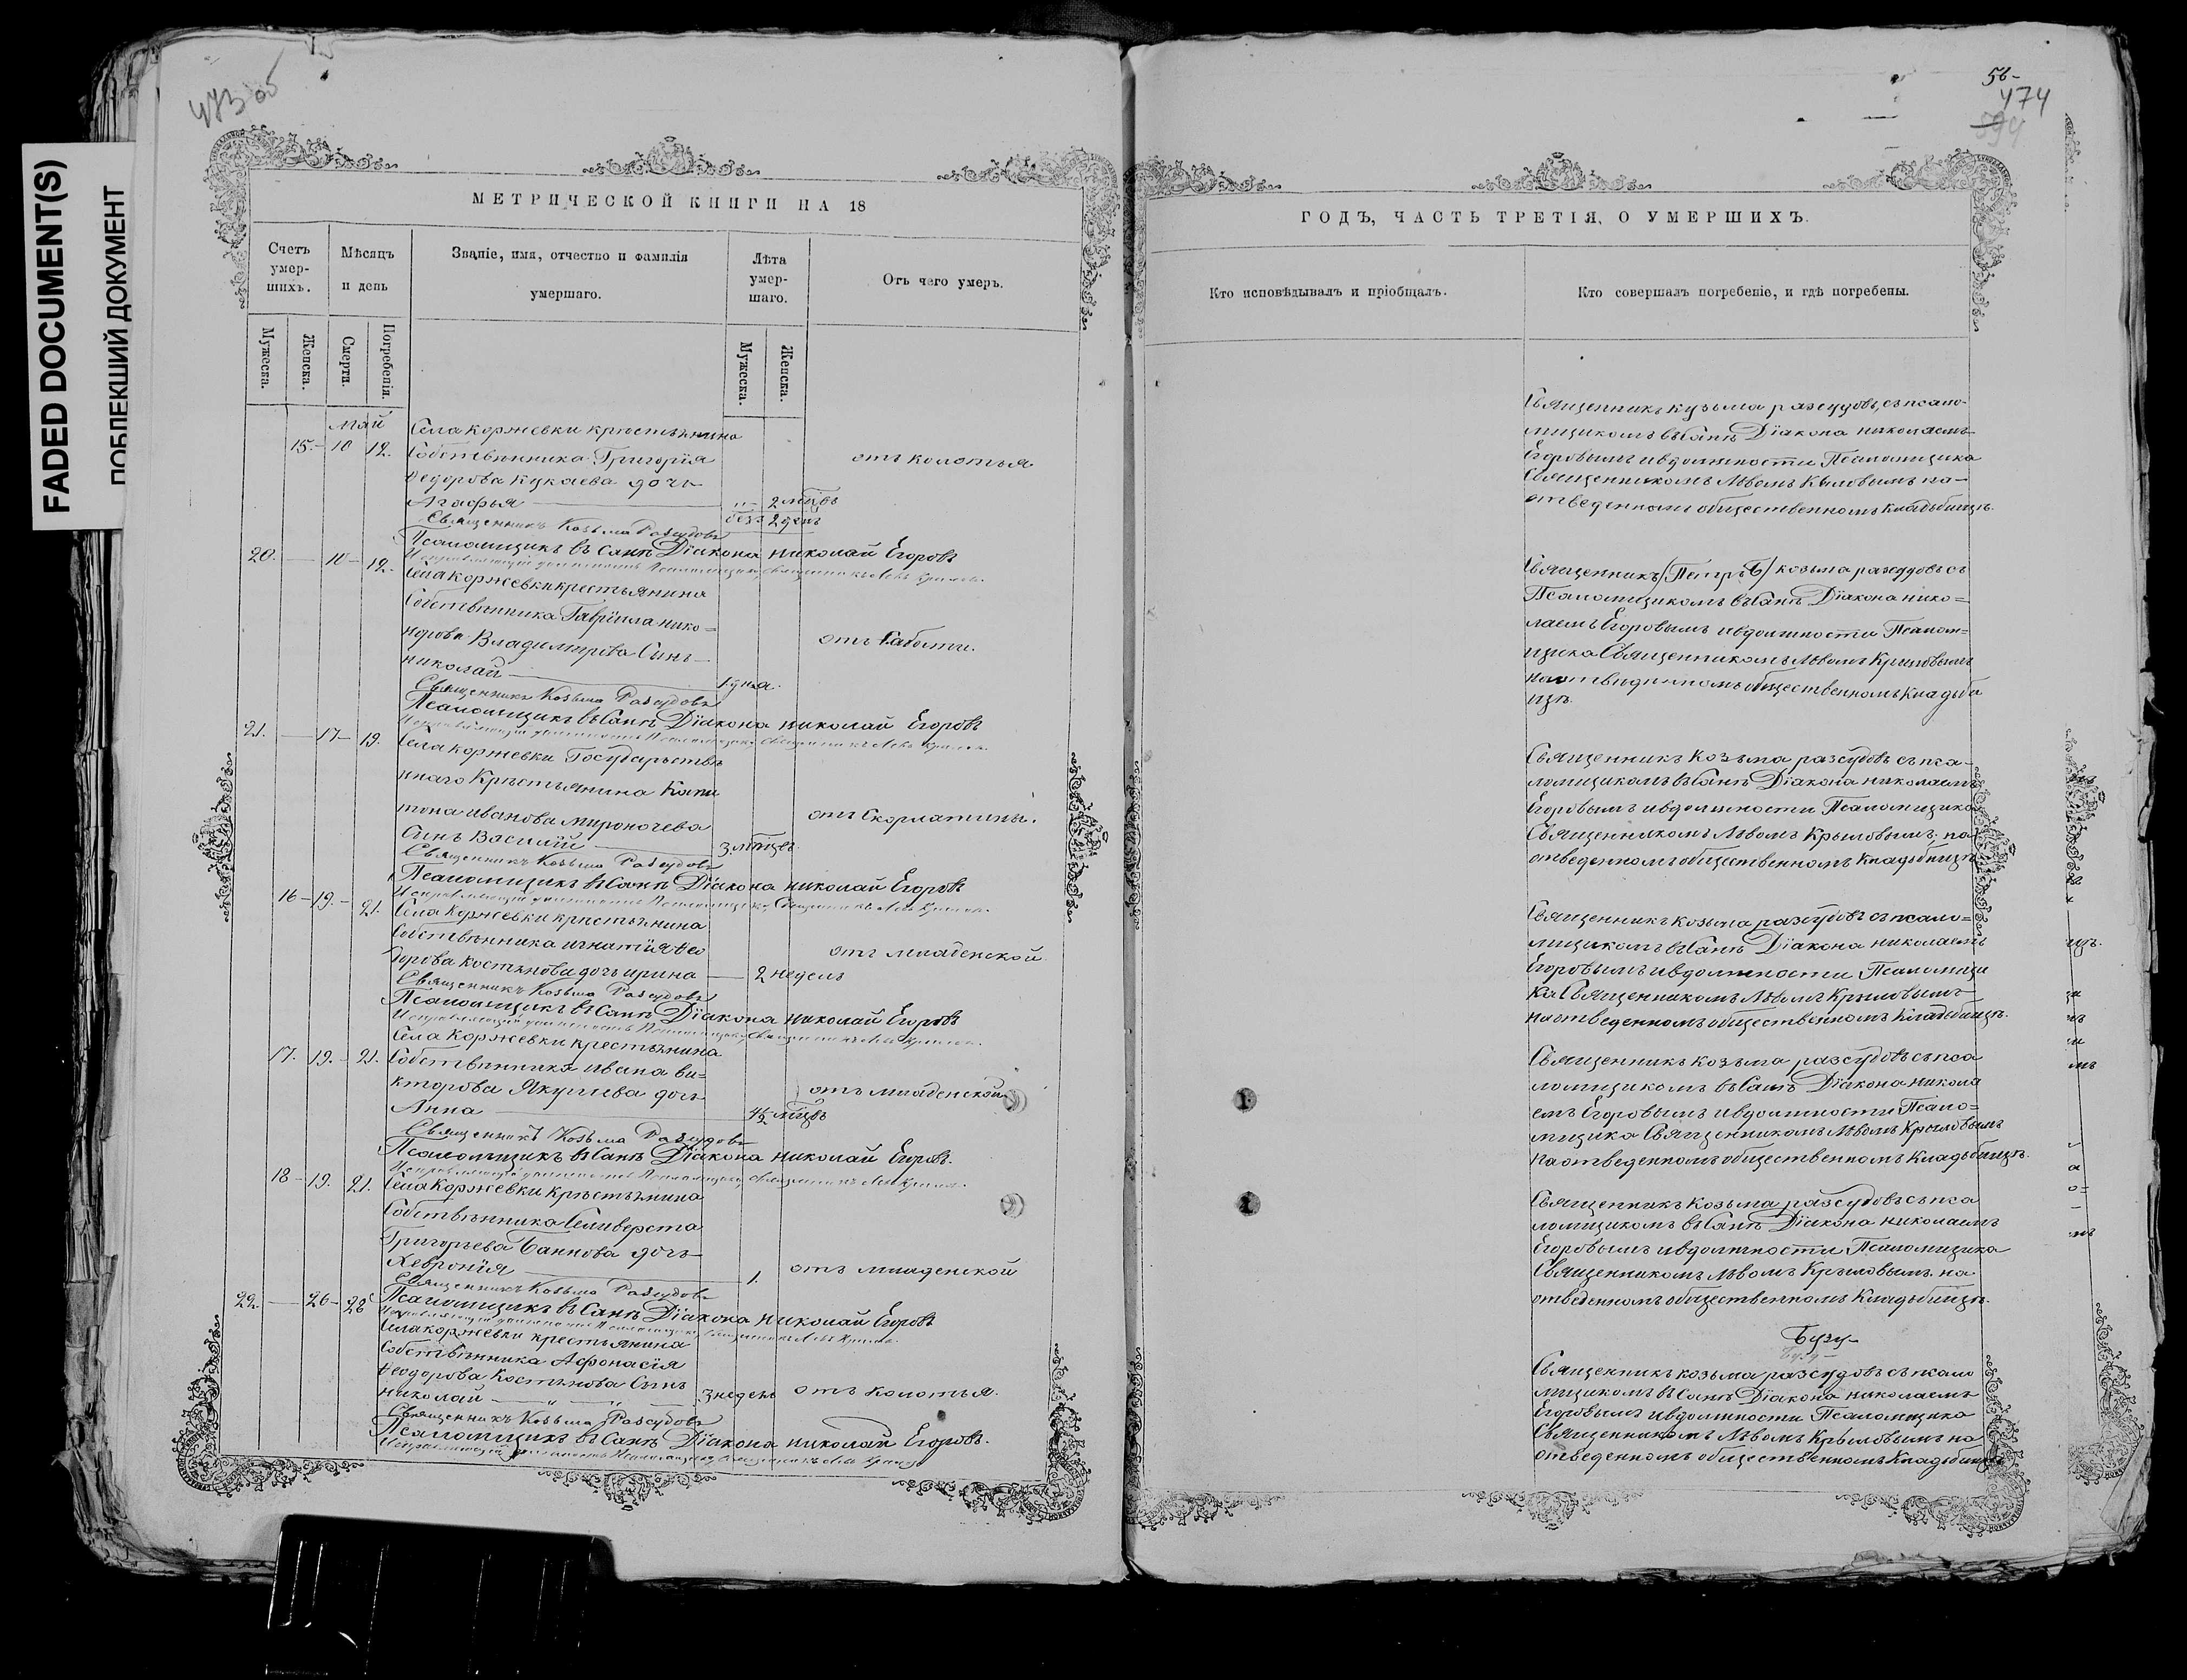 FADED DOCUMENT(S)
ПОБЛЕКШИЙ ДОКУМЕНТ
473 об
МЕТРИЧЕСКОЙ КНИГИ НА 18
Счетъ умер-шихъ.
Мѣсяцъ и день
Званіе, имя, отчество и фамилія умершаго.
Лѣта умер-шаго.
Отъ чего умеръ.
Мужеска.
Женска.
Смерти.
Погребенія.
Мужеска.
Женска.
Май
Села Коржевки крестьянина
15. 10 12. Собственника Григорія
отъ колотья
Ѳедорова Кукаева дочь
Агафья 2 мѣцъ
безъ 2 день
Священникъ Козьма Разсудовъ
Псаломщикъ въ санѣ Діакона Николай Егоровъ
20. 10 12.
Села Коржевки крестьянина
Собственника Гавріила Нико=
норова Владимірова Сынъ
отъ Слабости.
Николай 1. дня.
Священникъ Козьма Разсудовъ
Псаломщикъ въ санѣ Діакона Николай Егоровъ
21. 17 19. Села Коржевки Государстве
ннаго Крестьянина Капи
тона Иванова Мироночева
отъ Скорлатины.
Сынъ Василій 3. мѣцев.
Священникъ Козьма Разсудовъ
Псаломщикъ въ санѣ Діакона Николай Егоровъ
16 19. 21. Села Коржевки крестьянина
Собственника Игнатія Ѳео
отъ младенской
дорова Костянова дочь Ирина 2 недель
Священникъ Козьма Разсудовъ
Псаломщикъ въ санѣ Діакона Николай Егоровъ
Села Коржевки крестьянина
17. 19. 21. Собственника Ивана Ви=
кторова Якушева дочь
отъ младенской
Анна 4½ мѣцъ
Священникъ Козьма Разсудовъ
Псаломщикъ въ санѣ Діакона Николай Егоровъ.
18 19. 21. Села Коржевки крестьянина
Собственника Селиверста
Григорьева Баннова дочь
Хевронія 1.
отъ младенской
Священникъ Козьма Разсудовъ
22. 26 28 Псаломщикъ въ санѣ Діакона Николай Егоровъ
Села Коржевки крестьянина
Собственника Афонасія
Ѳеодорова Костянова Сынъ
Николай 3 недель отъ колотья.
Священникъ Козьма Разсудовъ
Псаломщикъ въ санѣ Діакона Николай Егоровъ.
56-
474
ГОДЪ, ЧАСТЬ ТРЕТІЯ, О УМЕРШИХЪ.
Кто исповѣдывалъ и пріобщалъ.
Кто совершалъ погребеніе, и гдѣ погребены.
Священникъ Кузьма Разсудовъ, съ псало-
мщикомъ въ санѣ Діакона Николаемъ
Егоровымъ и в должности Псаломщика
Священникомъ Львомъ Крыловымъ на-
отведенномъ общественномъ кладьбищѣ.
Священникъ /Петръ Б/ Козьма Разсудовъ съ
Псаломщикомъ въ санѣ Діакона Нико=
лаемъ Егоровымъ и в должности Псалом=
щика Священникомъ Львомъ Крыловымъ
на отведенномъ общественномъ кладьби
щѣ.
Священникъ Козьма Разсудовъ съ пса-
ломщикомъ въ санѣ Діакона Николаемъ
Егоровымъ и в должности Псаломщика
Священникомъ Львомъ Крыловымъ, на
отведенномъ общественномъ кладьбищѣ
Священникъ Козьма Разсудовъ съ псало=
мщикомъ въ санѣ Діакона Николаемъ
Егоровымъ и в должности Псаломщи
ка Священникомъ Львомъ Крыловымъ
на отведенномъ общественномъ кладьбищѣ.
Священникъ Козьма Разсудовъ съ пса
ломщикомъ въ санѣ Діакона Никола
емъ Егоровымъ и в должности Псало=
мщика Священникомъ Львомъ Крыловымъ
на отведенномъ общественномъ кладьбищѣ.
Священникъ Козьма Разсудовъ съ пса
ломщикомъ въ санѣ Діакона Николаемъ
Егоровымъ и в должности Псаломщика
Священникомъ Львомъ Крыловымъ. на
отведенномъ общественномъ кладьбищѣ.
Священникъ Козьма Разсудовъ съ псало
мщикомъ въ санѣ Діакона Николаемъ
Егоровымъ и в должности Псаломщика
Священникомъ Львомъ Крыловымъ на
отведенномъ общественномъ кладьбищѣ